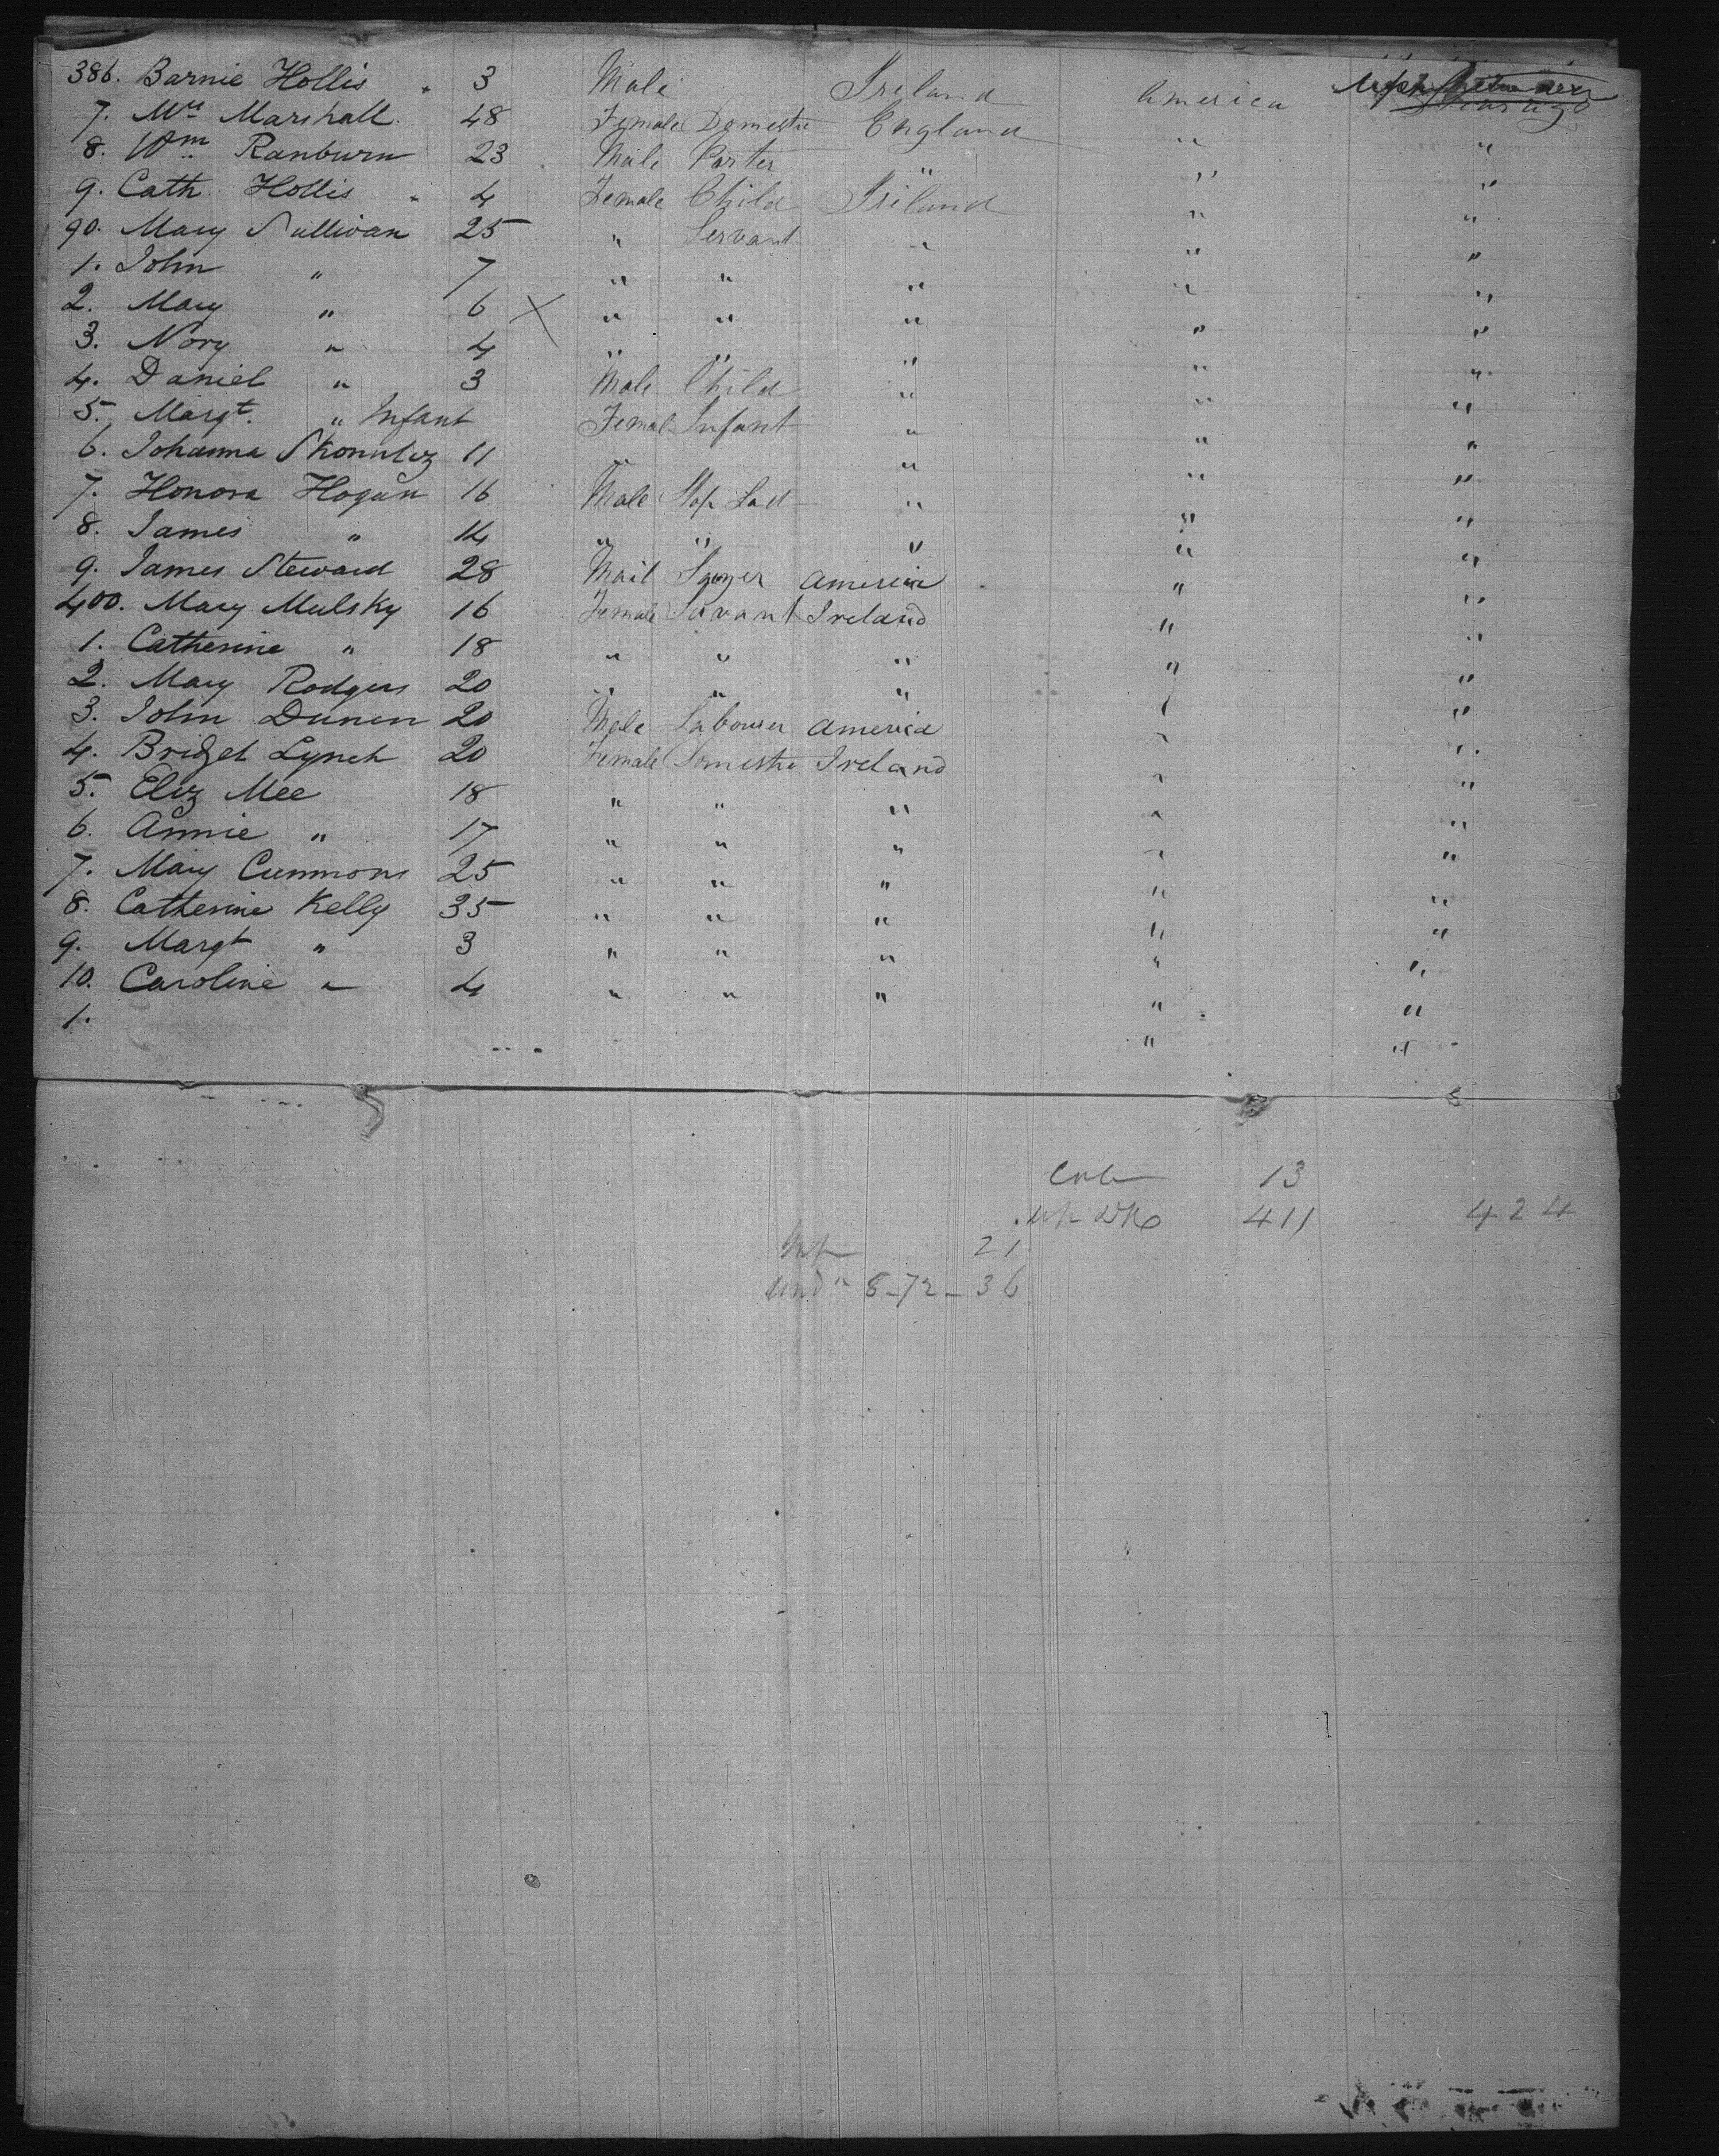 386. Barnie Hollis " 3 Male Ireland America
7. Mrs Marshall. 48 Female Domestic England " "
8. Wm Ranburn 23 Male Porter " " "
9. Cath. Hollis " 4 Female Child Ireland " "
90. Mary Sullivan 25 " Servant " " "
1. John " 7 " " " " "
2. Mary " 6 X " " " " "
3. Nory " 4 " " " " "
4. Daniel " 3 Male Child " " "
5. Margt. " Infant Female Infant " " "
6. Johanna 11 " " " "
7. Honora Hogan 16 Male Lad " " "
8. James " 14 " " " " "
9. James Steward 28 Mail America " "
400. Mary Mulsky 16 Female Servant Ireland " "
1. Catherine " 18 " " " " "
2. Mary Rodgers 20 " " " " "
3. John Dunen 20 Male Labourer America " "
4. Bridget Lynch 20 Female Domestic Ireland " "
5. Eliz Mee 18 " " " " "
6. Annie " 17 " " " " "
7. Mary Cummons 25 " " " " "
8. Catherine Kelly 35 " " " " "
9. Margt " 3 " " " " "
10. Caroline " 4 " " " " "
1. " "
13
411 424
Inf 21
Und " 8-72-36